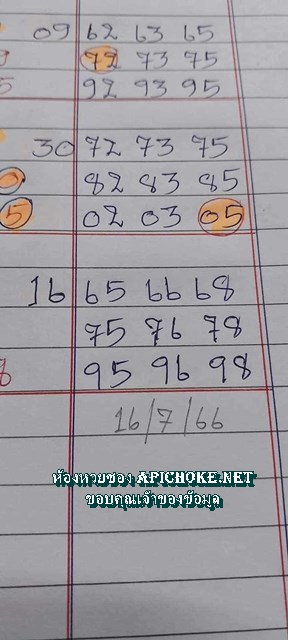 09 62 63 65
9 72 73 75
5 92 93 95
30 72 73 75
0 82 83 85
5 02 03 05
16 65 66 68
75 76 78
8 95 96 98
16/7/66
ห้องหวยซอง APICHOKE.NET
ขอบคุณเจ้าของข้อมูล